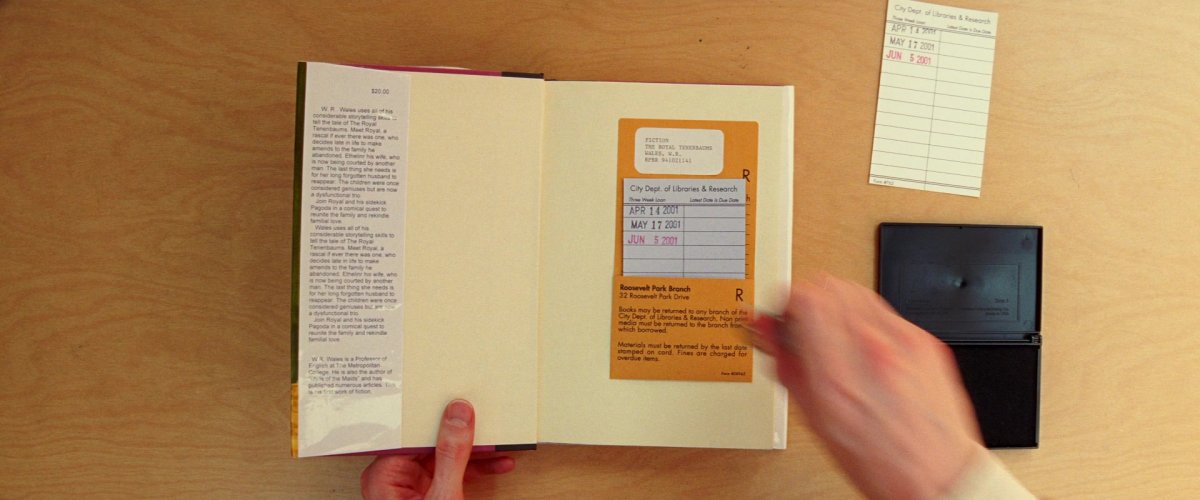 $20.00
W. R. Wales uses all of his
considerable storytelling skills to
tell the tale of The Royal
Tenenbaums. Meet Royal, a
rascal if ever there was one, who
decides late in life to make
amends to the family he
abandoned. Ethelinr his wife, who
is now being courted by another
man. The last thing she needs is
for her long forgotten husband to
reappear. The children were once
considered geniuses but are now
a dysfunctional trio.
Join Royal and his sidekick
Pagoda in a comical quest to
reunite the family and rekindle
familial love.
Wales uses all of his
considerable storytelling skills to
tell the tale of The Royal
Tenenbaums. Meet Royal, a
rascal if ever there was one, who
decides late in life to make
amends to the family he
abandoned. Ethelinr his wife, who
is now being courted by another
man. The last thing she needs is
for her long forgotten husband to
reappear. The children were once
considered geniuses but are now
a dysfunctional trio.
Join Royal and his sidekick
Pagoda in a comical quest to
reunite the family and rekindle
familial love.
W.R. Wales is a Professor of
English at The Metropolitan
College. He is also the author of
of the Maids" and has
published numerous articles. This
is his first work of fiction.
FICTION
THE ROYAL TENENBAUMS
WALES, W.R.
RPBR 941021141
R
City Dept. of Libraries & Research
Three Week Loan Latest Date is Due Date
APR 14 2001
MAY 17 2001
JUN 5 2001
Roosevelt Park Branch
32 Roosevelt Park Drive
R
Books may be returned to any branch of the
City Dept. of Libraries & Research. Non print
media must be returned to the branch from
which borrowed.
Materials must be returned by the last date
stamped on card. Fines are charged for
overdue items.
City Dept. of Libraries & Research
Three Week Loan Latest Date is Due Date
APR 14 2001
MAY 17 2001
JUN 5 2001